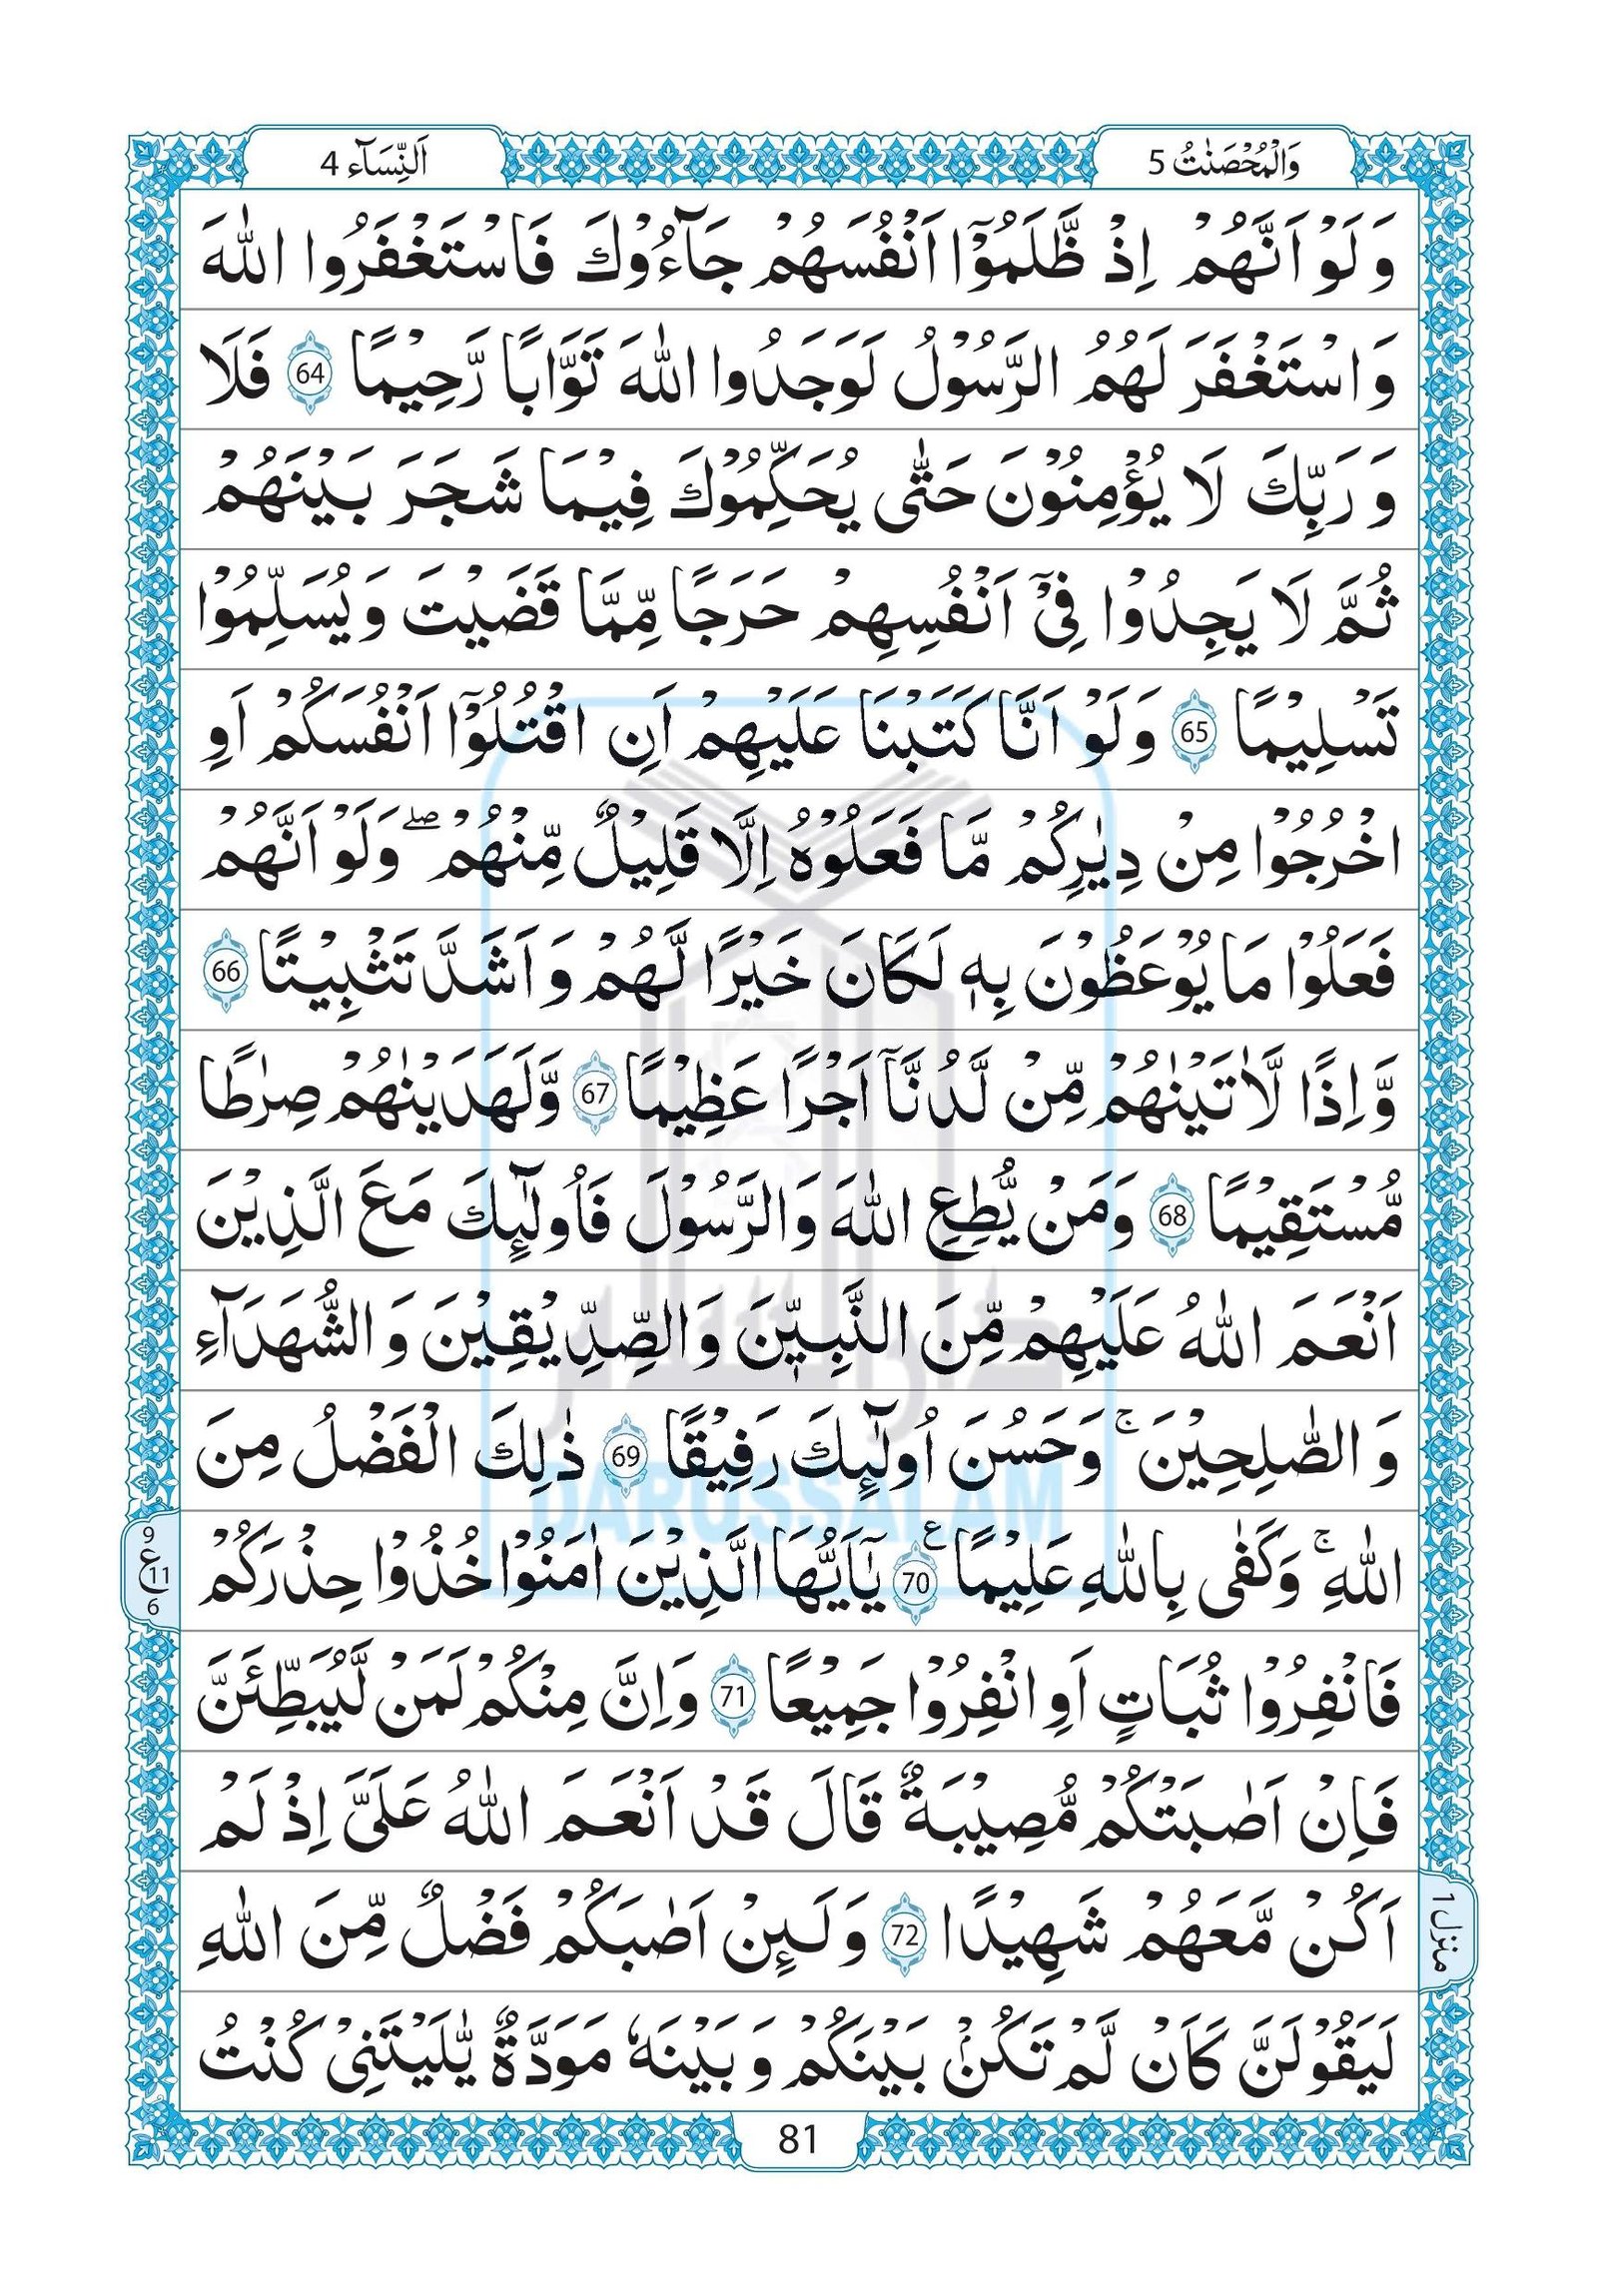 وَالْمُحْصَنٰتُ 5
اَلنِّسَآء 4
وَ لَوْ اَنَّهُمْ اِذْ ظَّلَمُوْۤا اَنْفُسَهُمْ جَآءُوْكَ فَاسْتَغْفَرُوا اللّٰهَ
وَ اسْتَغْفَرَ لَهُمُ الرَّسُوْلُ لَوَجَدُوا اللّٰهَ تَوَّابًا رَّحِيْمًا 64 فَلَا
وَ رَبِّكَ لَا يُؤْمِنُوْنَ حَتّٰى يُحَكِّمُوْكَ فِيْمَا شَجَرَ بَيْنَهُمْ
ثُمَّ لَا يَجِدُوْا فِيْۤ اَنْفُسِهِمْ حَرَجًا مِّمَّا قَضَيْتَ وَ يُسَلِّمُوْا
تَسْلِيْمًا 65 وَ لَوْ اَنَّا كَتَبْنَا عَلَيْهِمْ اَنِ اقْتُلُوْۤا اَنْفُسَكُمْ اَوِ
اخْرُجُوْا مِنْ دِيٰرِكُمْ مَّا فَعَلُوْهُ اِلَّا قَلِيْلٌ مِّنْهُمْ ۖ وَلَوْ اَنَّهُمْ
فَعَلُوْا مَا يُوْعَظُوْنَ بِهٖ لَكَانَ خَيْرًا لَّهُمْ وَ اَشَدَّ تَثْبِيْتًا 66
وَّ اِذًا لَّاٰتَيْنٰهُمْ مِّنْ لَّدُنَّاۤ اَجْرًا عَظِيْمًا 67 وَّلَهَدَيْنٰهُمْ صِرٰطًا
مُّسْتَقِيْمًا 68 وَمَنْ يُّطِعِ اللّٰهَ وَالرَّسُوْلَ فَاُولٰٓئِكَ مَعَ الَّذِيْنَ
اَنْعَمَ اللّٰهُ عَلَيْهِمْ مِّنَ النَّبِيّٖنَ وَالصِّدِّيْقِيْنَ وَ الشُّهَدَآءِ
وَ الصّٰلِحِيْنَ ۚ وَحَسُنَ اُولٰٓئِكَ رَفِيْقًا 69 ذٰلِكَ الْفَضْلُ مِنَ
اللّٰهِ ۚ وَكَفٰى بِاللّٰهِ عَلِيْمًا ع 70 يٰۤاَيُّهَا الَّذِيْنَ اٰمَنُوْا خُذُوْا حِذْرَكُمْ
9 ع 11 6
فَانْفِرُوْا ثُبَاتٍ اَوِ انْفِرُوْا جَمِيْعًا 71 وَاِنَّ مِنْكُمْ لَمَنْ لَّيُبَطِّئَنَّ
فَاِنْ اَصٰبَتْكُمْ مُّصِيْبَةٌ قَالَ قَدْ اَنْعَمَ اللّٰهُ عَلَيَّ اِذْ لَمْ
اَكُنْ مَّعَهُمْ شَهِيْدًا 72 وَ لَىِٕنْ اَصٰبَكُمْ فَضْلٌ مِّنَ اللّٰهِ
منزل 1
لَيَقُوْلَنَّ كَاَنْ لَّمْ تَكُنْۢ بَيْنَكُمْ وَ بَيْنَهٗ مَوَدَّةٌ يّٰلَيْتَنِيْ كُنْتُ
81
دارالسلام
DARUSSALAM